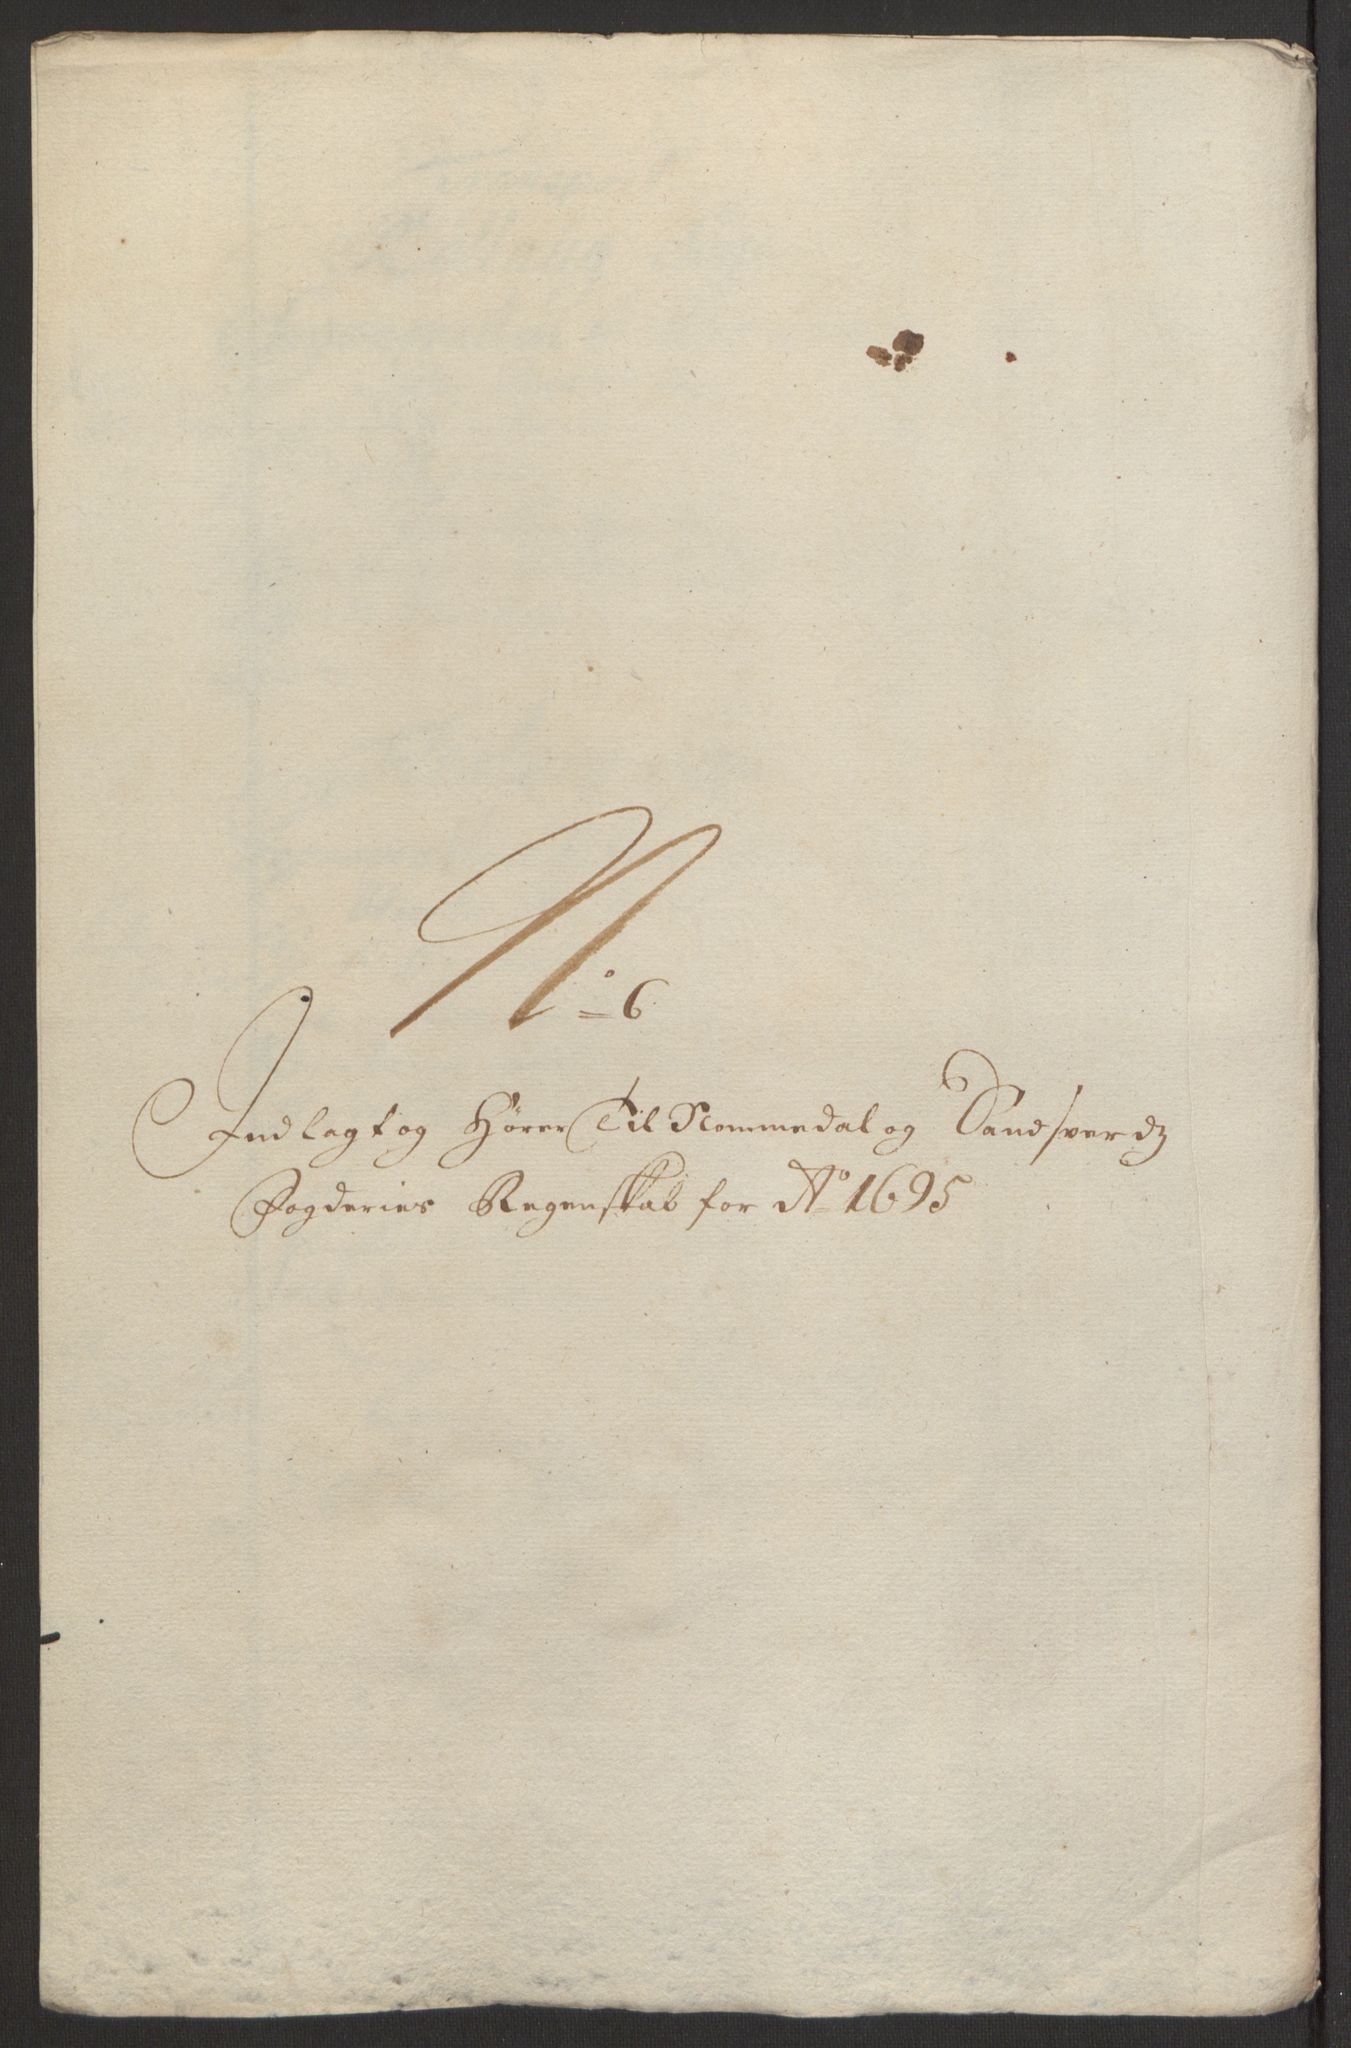 No 6
Indlagt og Hører Til Nommedal og Sandsverdz
Fogderies Regenskab for Ao 1695